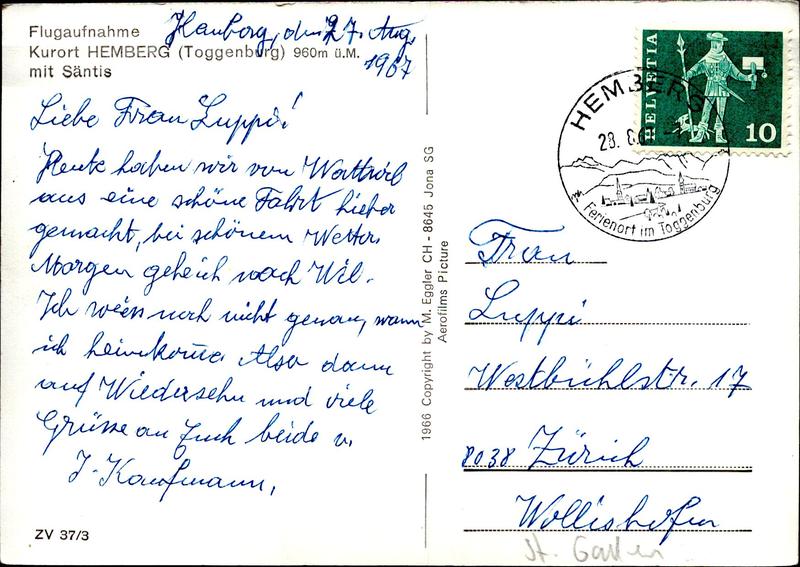 Flugaufnahme
Kurort HEMBERG (Toggenburg) 960m ü.M.
mit Säntis
Hemberg, den 27. Aug.
1967
Liebe Frau Luppi!
Heute haben wir von Wattwil
aus eine schöne Fahrt hieher
gemacht, bei schönem Wetter.
Morgen gehe ich nach Wil.
Ich weiss noch nicht genau, wann
ich heimkome. Also dann
auf Wiedersehn und viele
Grüsse an Euch beide v.
J. Kaufmann.
ZV 37/3
1966 Copyright by M. Eggler CH - 8645 Jona SG
Aerofilms Picture
HELVETIA
10
HEMBERG
28. 8. 67
Ferienort im Toggenburg
Frau
Luppi
Westbühlstr. 17
8038 Zürich
Wollishofen
St. Gallen